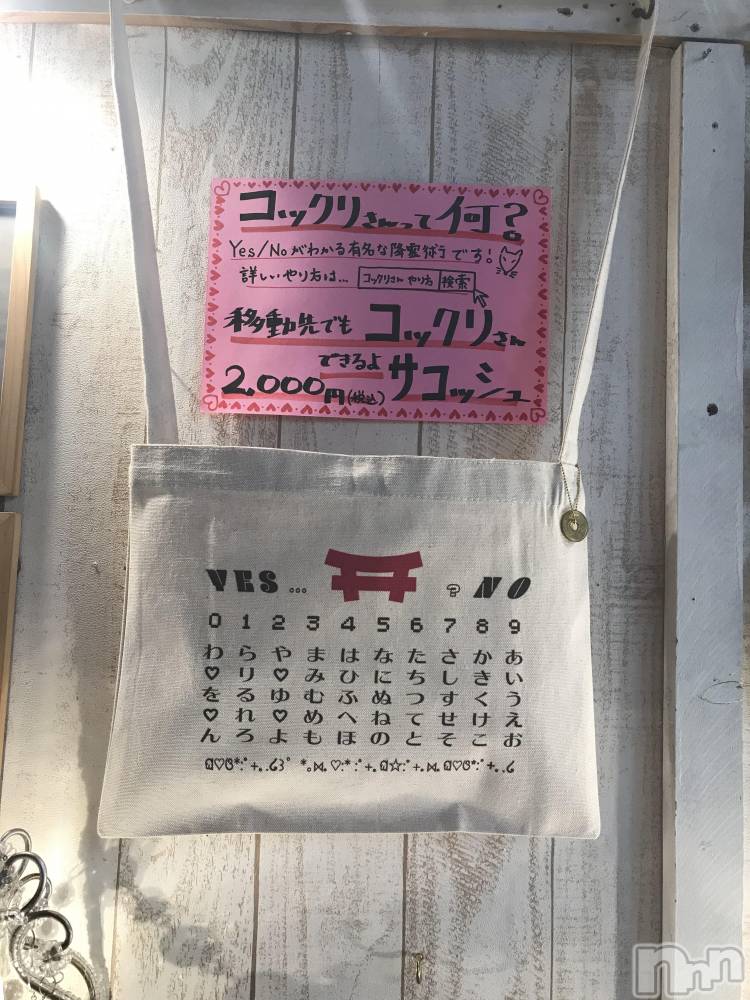 コックリさんって何?
Yes/Noがわかる有名な降霊術です!
詳しいやり方は… コックリさん やり方 検索
移動先でも コックリさん
できるよ
2,000円(税込) サコッシュ
YES … ? NO
0 1 2 3 4 5 6 7 8 9
わ ら や ま は な た さ か あ
♡ り ♡ み ひ に ち し き い
を る ゆ む ふ ぬ つ す く う
♡ れ ♡ め へ ね て せ け え
ん ろ よ も ほ の と そ こ お